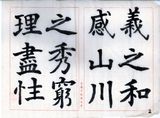 義之和
感山川
之秀窮
理盡性